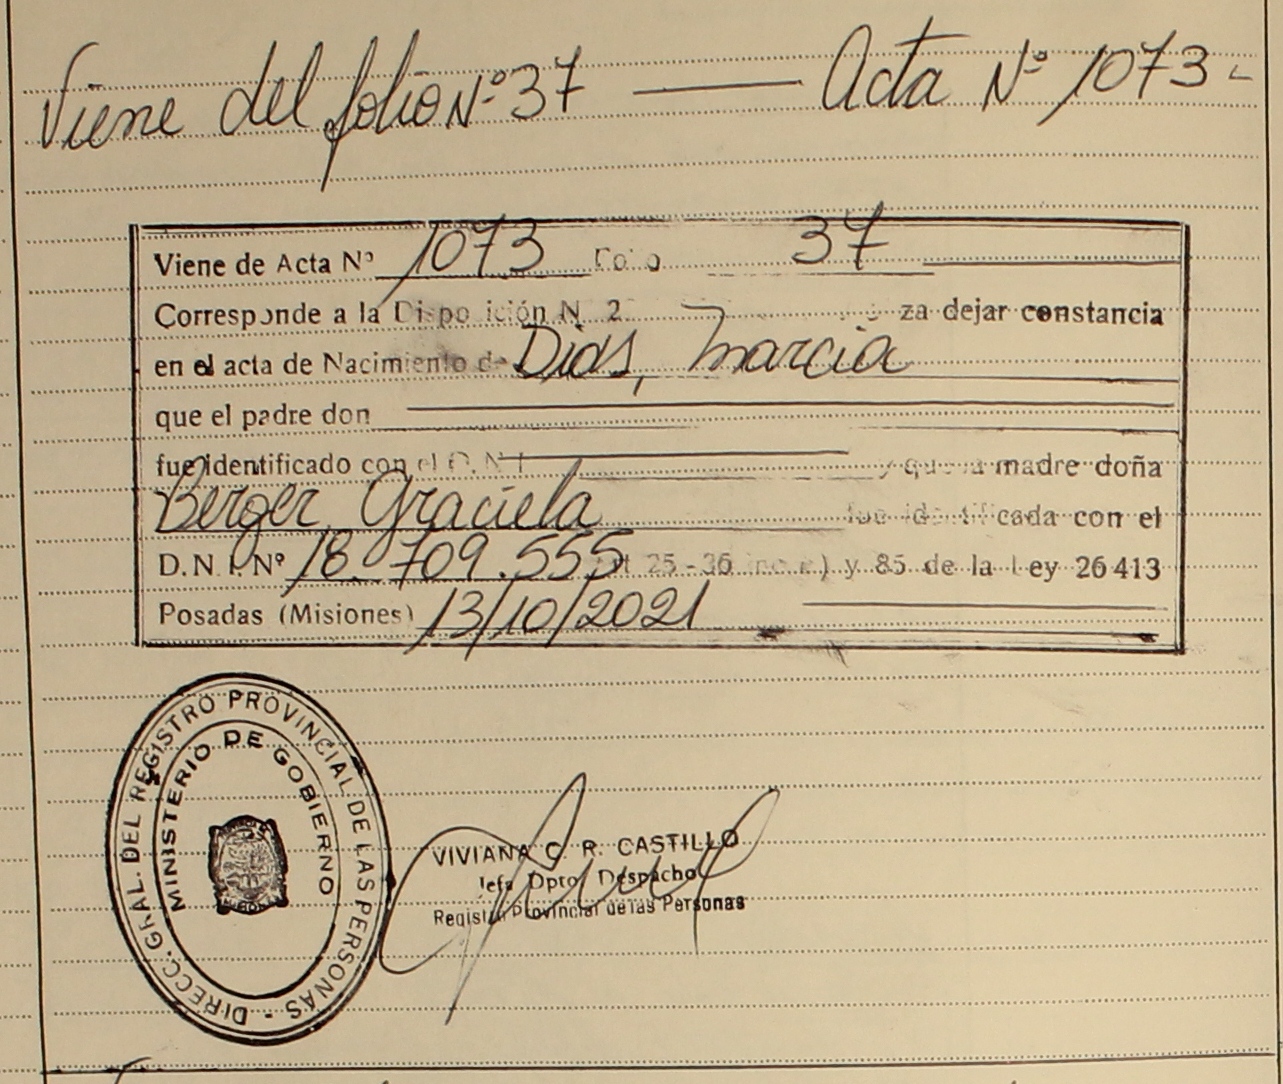 Viene del folio Nº 37 — Acta Nº 1073 -
Viene de Acta Nº 1073 Folio 37
Corresponde a la Disposición N. 2 za dejar constancia
en el acta de Nacimiento de Dias, Marcia
que el padre don
fue identificado con el D.N.I. y que la madre doña
Berger, Graciela fue identificada con el
D.N.I. Nº 18.709.555 25-36 ) y 85 de la Ley 26413
Posadas (Misiones) 13/10/2021
DIRECC. GRAL. DEL REGISTRO PROVINCIAL DE LAS PERSONAS -
MINISTERIO DE GOBIERNO
VIVIANA C. R. CASTILLO
Jefa Dpto. Despacho
Registro Provincial de las Personas